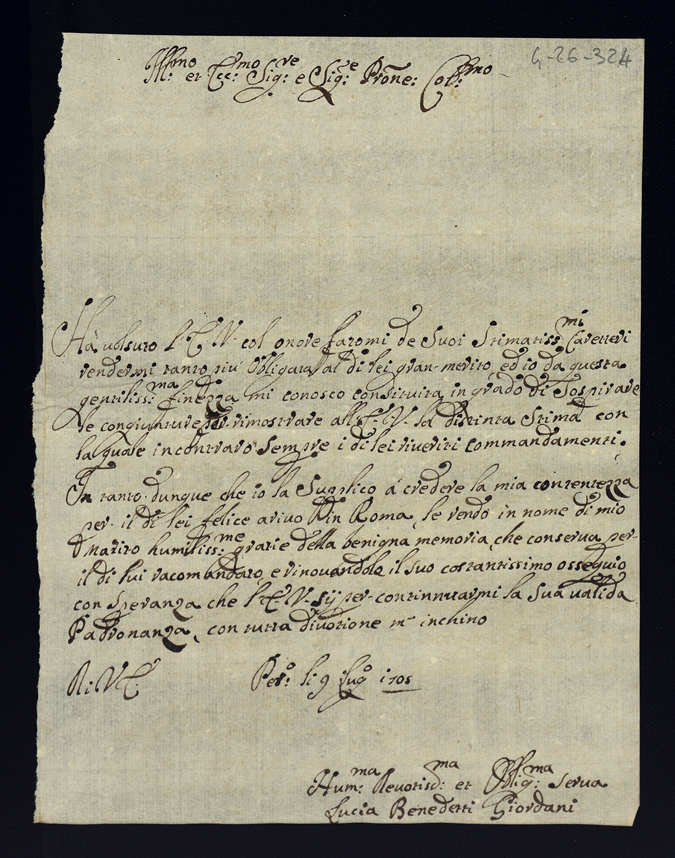 G-26-324
Ill:mo et Ecc:mo Sig:re e Sig:e Prone: Col:mo
Hà uolsuto l'E.V. col onore faromi de Suoi Stimatiss:mi Caretteri
rendermi tanto più Obligata al di lei gran merito, ed io da questa
gentiliss:ma finezza mi conosco constituita in grado di Sospirare
le congiunture per rimostrare all'E.V. la distinta Stima con
la quale incontraro Sempre i di lei riueriti commandamenti.
In tanto dunque che io la Suplico á credere la mia contentezza
per il di lei felice ariuo in Roma, le rendo in nome di mio
marito humiliss:me grazie della benigna memoria, che conserua per
il di lui racomandato, e rinouandole il suo costantissimo ossequio
con Speranza che l'E.V. sij per continnuarmi la Sua ualida
Padronanza, con tutta diuotione m' inchino
Di V.E.
Pes:o li 9 Lug:o 1705
Hum:ma Deuotis:ma et Oblig:ma Serua
Lucia Benedetti Giordani